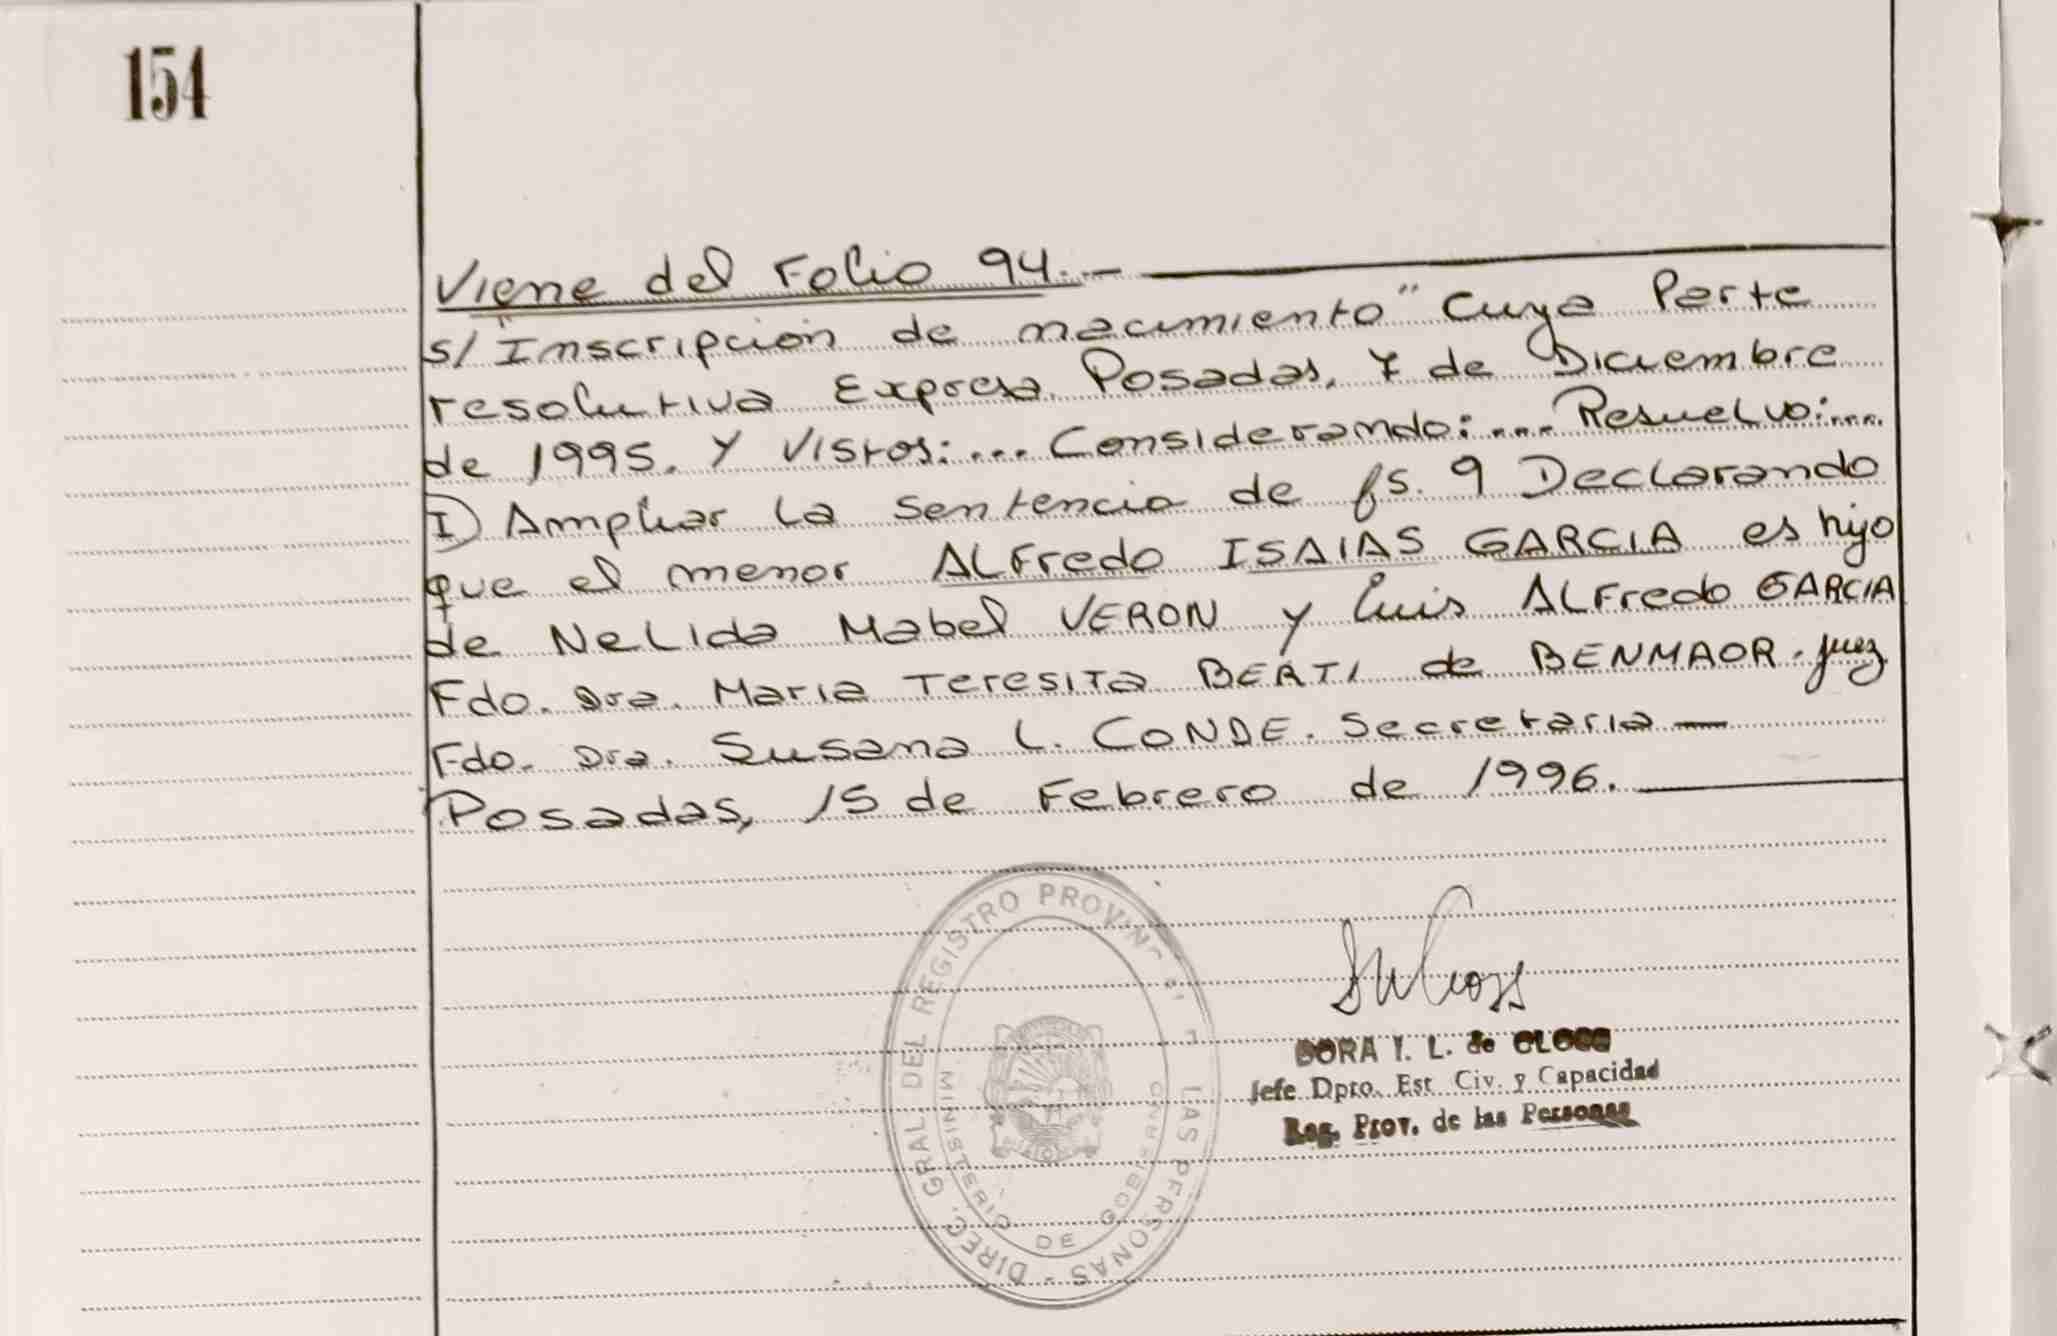 154
Viene del Folio 94.-
s/"Inscripción de nacimiento" cuya Parte
resolutiva Expresa Posadas, 7 de Diciembre
de 1995. Y Vistos:... Considerando:... Resuelvo:....
I) Ampliar la sentencia de fs. 9 Declarando
que el menor ALFredo ISAIAS GARCIA es hijo
de NeLida Mabel VERON y Luis ALFredo GARCIA
Fdo. Dra. Maria Teresita BERTI de BENMAOR. juez
Fdo. Dra. Susana L. CONDE. Secretaria —
Posadas, 15 de Febrero de 1996.
DIREC. GRAL. DEL REGISTRO PROVINCIAL LAS PERSONAS -
MINISTERIO DE GOBIERNO
DORA Y. L. de
Jefe Dpto. Est Civ. y Capacidad
Reg. Prov. de las Personas